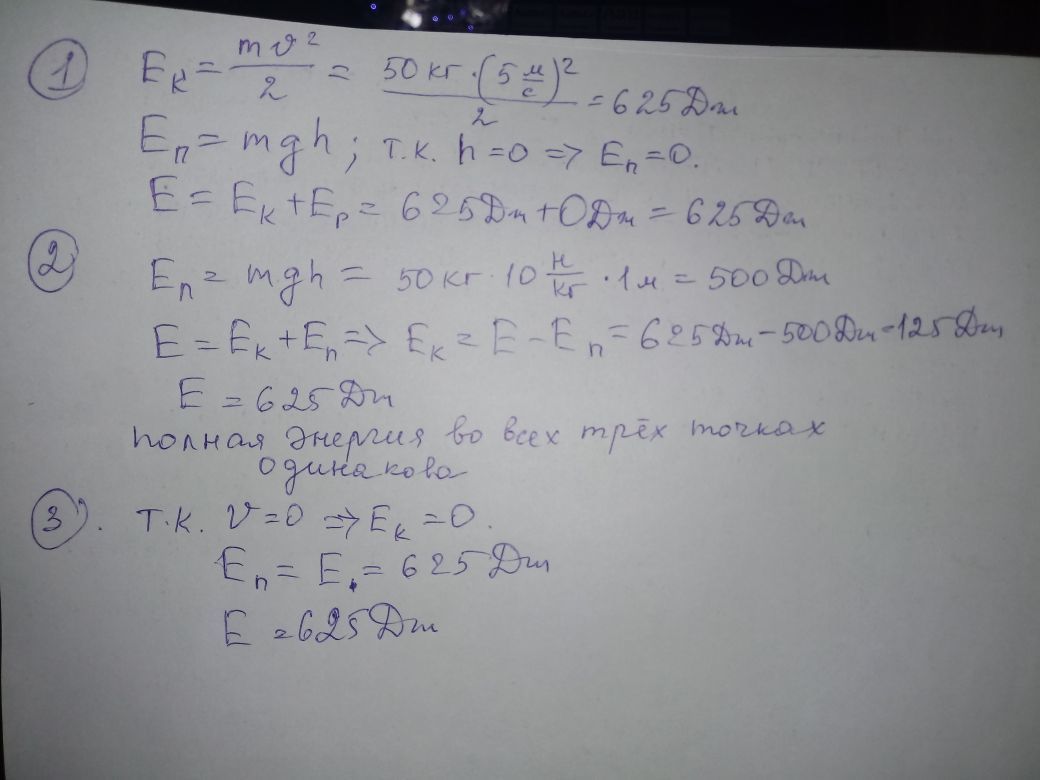 ① Eк = mv²/2 = 50 кг · (5 м/с)²/2 = 625 Дж
Eп = mgh; т.к. h=0 => Eп=0.
E = Eк + Eр = 625 Дж + 0 Дж = 625 Дж
② Eп = mgh = 50 кг · 10 Н/кг · 1 м = 500 Дж
E = Eк + Eп => Eк = E - Eп = 625 Дж - 500 Дж = 125 Дж
E = 625 Дж
полная энергия во всех трёх точках
одинакова
③. т.к. v=0 => Eк = 0.
Eп = E = 625 Дж
E = 625 Дж